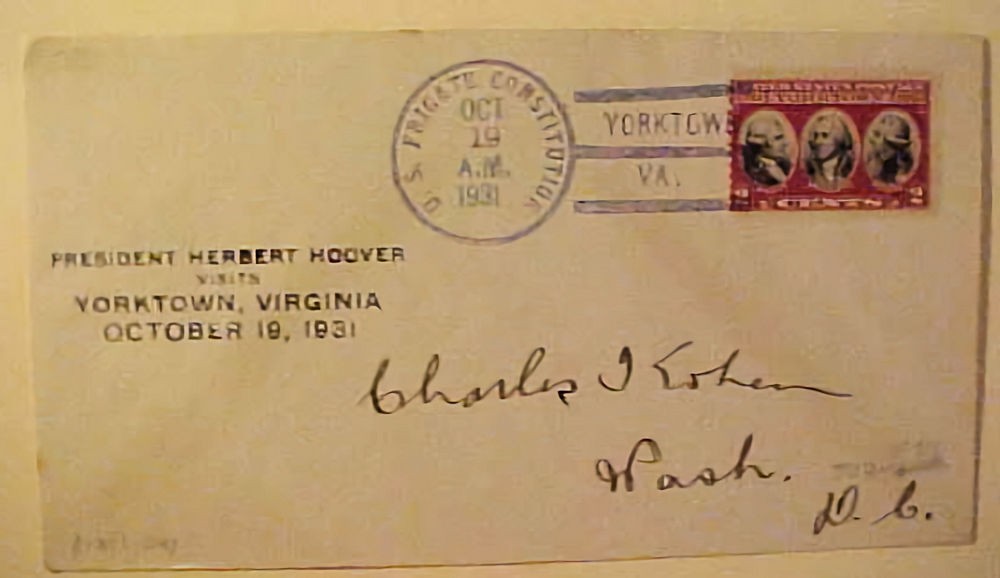 U. S. FRIGATE CONSTITUTION
OCT
19
A.M.
1931
YORKTOWN
VA.
2 CENTS 2
PRESIDENT HERBERT HOOVER
VISITS
YORKTOWN, VIRGINIA
OCTOBER 19, 1931
Charles I Kohen
Wash.
D. C.